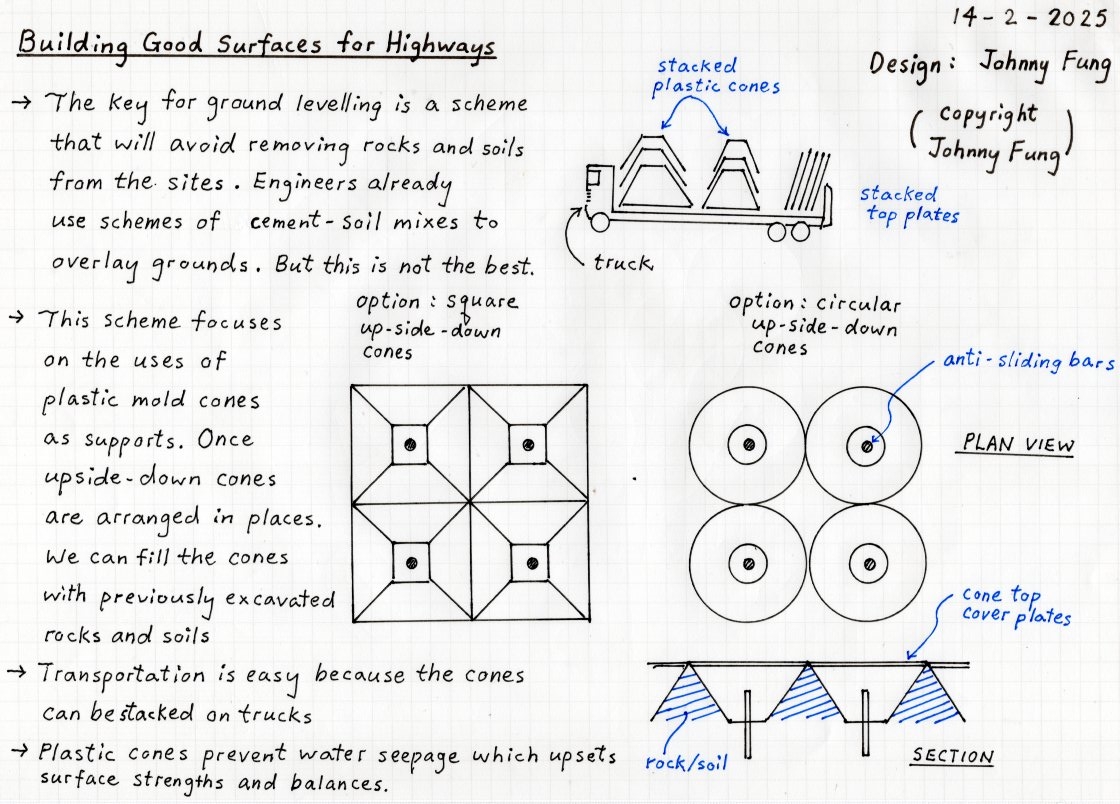 14-2-2025
Building Good Surfaces for Highways
Design: Johnny Fung
(copyright
Johnny Fung)
→ The key for ground levelling is a scheme
that will avoid removing rocks and soils
from the sites. Engineers already
use schemes of cement-soil mixes to
overlay grounds. But this is not the best.
stacked
plastic cones
stacked
top plates
truck
→ This scheme focuses
on the uses of
plastic mold cones
as supports. Once
upside-down cones
are arranged in places.
We can fill the cones
with previously excavated
rocks and soils
option: square
up-side-down
cones
option: circular
up-side-down
cones
anti-sliding bars
PLAN VIEW
cone top
cover plates
→ Transportation is easy because the cones
can be stacked on trucks
→ Plastic cones prevent water seepage which upsets
surface strengths and balances.
rock/soil
SECTION